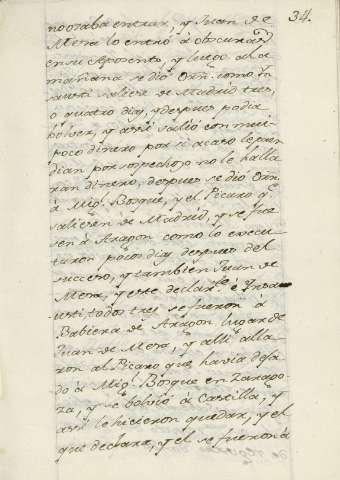 34.
no osaba entrar, y Juan de
Mesa lo entró à obscuras
en su Aposento, y luego à la
mañana se dió Orn. como Yn
austi saliese de Madrid tres,
o quatro dias, y despues podia
bolver, y assi salió con mui
poco dinero por si acaso le pren
dian por sospechoso no le halla
ran dinero, despues se dió Orn
à Mig.l Bosque, y el Picaro q.e
saliesen de Madrid, y se fue
sen à Aragon como lo execu
taron pocos dias despues del
succeso, y tambien Juan de
Mesa, y este declar.te è Ynsa
usti todos tres se fueron à
Babiera de Aragon lugar de
Juan de Mesa, y alli alla
ron al Picaro que havia deja
do à Mig.l Bosque en Zarago
za, y se bolvió à Castilla, y
assi le hicieron quedar, y el
que declara, y el se fueron à